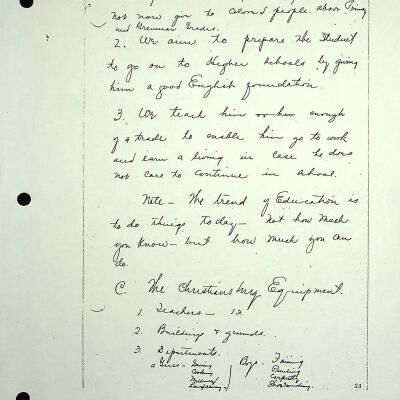 not now give to colored people above Primary
and Grammar Grades.
2. We aim to prepare the Student
to go on to Higher Schools by giving
him a good English foundation.
3. We teach him or her enough
of a trade to enable him go to work
and earn a living in case he does
not care to continue in school.
Note - The trend of Education is
to do things today - Not how much
you know - but how much you can
do.
C. The Christiansburg Equipment.
1. Teachers - 12
2. Buildings & grounds.
3. Departments.
Girls - Sewing
Cooking
Millinery
Laundering
Boys - Farming
Printing
Carpentry
Shoe mending.
23